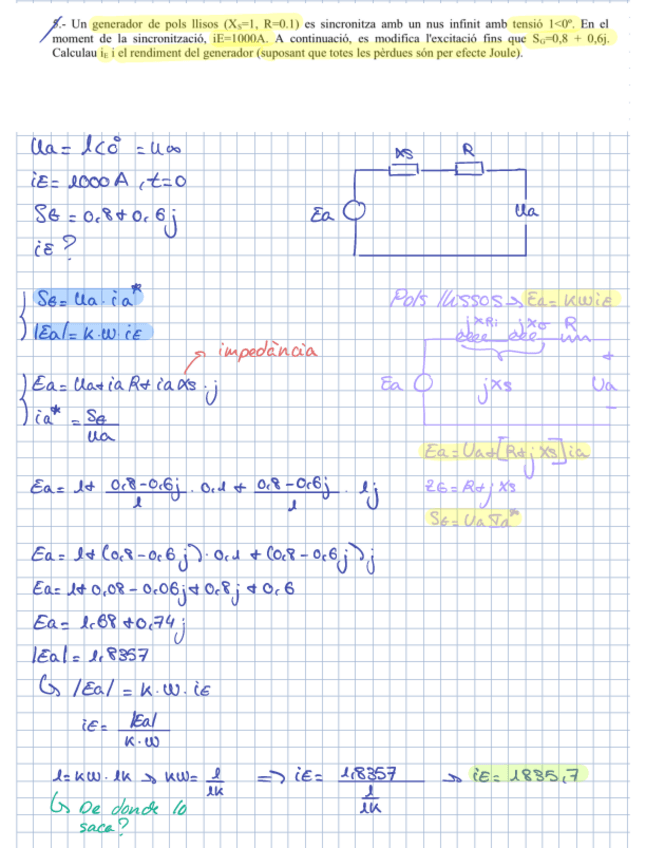 8.- Un generador de pols llisos (XS=1, R=0.1) es sincronitza amb un nus infinit amb tensió 1<0º. En el
moment de la sincronització, iE=1000A. A continuació, es modifica l'excitació fins que SG=0,8 + 0,6j.
Calculau iE i el rendiment del generador (suposant que totes les pèrdues són per efecte Joule).
Ua = 1<0° = U∞
iE = 1000 A, t=0
SG = 0,8+0,6j
iE?
XS R
Ea Ua
SG = Ua · ia*
|Ea| = K·W iE
impedància
Ea = Ua + ia R + ia Xs · j
ia* = SG / Ua
Pols llissos → Ea = KWiE
jXRi jXσ R
Ea jXs Ua
+
-
Ea = Ua + [R + j Xs] ia
ZG = R + j Xs
SG = Ua Ia*
Ea = 1 + (0,8-0,6j)/1 · 0,1 + (0,8-0,6j)/1 · 1j
Ea = 1 + (0,8-0,6j) · 0,1 + (0,8-0,6j)j
Ea = 1 + 0,08 - 0,06j + 0,8j + 0,6
Ea = 1,68 + 0,74j
|Ea| = 1,8357
↳ |Ea| = K·W·iE
iE = |Ea| / K·W
1 = KW·1K → KW = 1/1K => iE = 1,8357 / (1/1K) → iE = 1835,7
↳ De donde lo
saca?